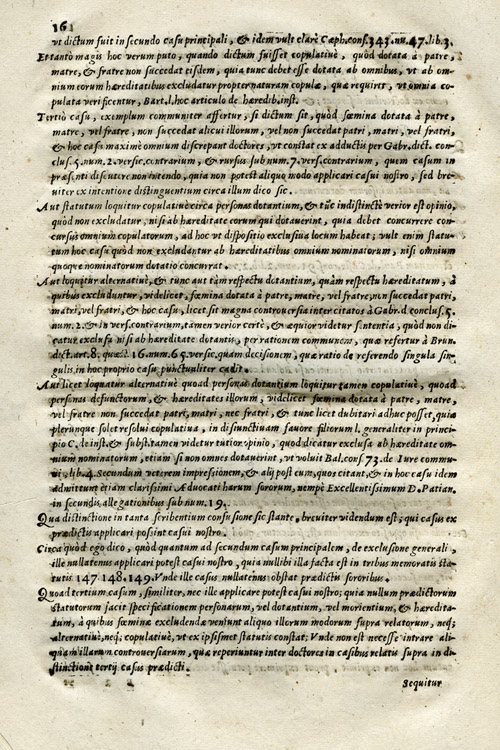 161
vt dictum fuit in secundo casu principali, & idem vult clarè Cæph. cons. 343. nu. 47. lib. 3.
Et tantò magis hoc verum puto, quando dictum fuisset copulatiuè, quòd dotata à patre,
matre, & fratre non succedat eisdem, quia tunc debet esse dotata ab omnibus, vt ab om-
nium eorum hæreditatibus excludatur propter naturam copulæ, quæ requirit, vt omnia co-
pulata verificentur, Bart. l. hoc articulo de hæredib. inst.
Tertiò casu, exemplum communiter affertur, si dictum sit, quòd fœmina dotata à patre,
matre, vel fratre, non succedat alicui illorum, vel non succedat patri, matri, vel fratri,
& hoc casu maximè omnium discrepant doctores, vt constat ex adductis per Gabr. dict. con-
clus. 5. num. 2. versic. contrarium, & rursus sub num. 7. vers. contrarium, quem casum in
præsenti discutere non intendo, quia non potest aliquo modo applicari casui nostro, sed bre-
uiter ex intentione distinguentium circa illum dico sic.
Aut statutum loquitur copulatiuè circa personas dotantium, & tũc indistinctè verior est opinio,
quòd non excludatur, nisi ab hæreditate eorum qui dotauerint, quia debet concurrere con-
cursus omnium copulatorum, ad hoc vt dispositio exclusiua locum habeat; vult enim statu-
tum hoc casu quòd non excludantur ab hæreditatibus omnium nominatorum, nisi omnium
quoque nominatorum dotatio concurrat.
Aut loquitur alternatiuè, & tunc aut tàm respectu dotantium, quàm respectu hæreditatum, à
quibus excluduntur, videlicet, fœmina dotata à patre, matre, vel fratre, non succedat patri,
matri, vel fratri, & hoc casu, licet sit magna controuersia inter citatos à Gabr. d. conclus. 5.
num. 2. & in vers. contrarium, tamen verior certè, & æquior videtur sententia, quòd non di-
catur exclusa nisi ab hæreditate dotantis, per rationem communem, quæ refertur à Brun.
dict. art. 8. 16. num. 65. versic. quam decisionem, quæ ratio de referendo singula sin-
gulis, in hoc proprio casu, punctualiter cadit.
Aut licet loquatur alternatiuè quoad personas dotantium loquitur tamen copulatiuè, quoad
personas defunctorum, & hæreditates illorum; videlicet fœmina dotata à patre, matre,
vel fratre non succedat patri, matri, nec fratri, & tunc licet dubitari adhuc posset, quia
plerunque solet resolui copulatiua, in disiunctiuam fauore filiorum l. generaliter in princi-
pio C. de inst. & subst. tamen videtur tutior opinio, quod dicatur exclusa ab hæreditate om-
nium nominatorum, etiam si non omnes dotauerint, vt voluit Bal. cons. 73. de Iure commu-
ni, lib. 4. secundum veterem impressionem, & alij post eum, quos citant, & in hoc casu idem
admittunt etiam clarissimi Aduocati harum sororum, nempè Excellentissimum D. Patian.
in secundis allegationibus sub num. 19.
Qua distinctione in tanta scribentium confusione sic stante, breuiter videndum est, qui casus ex
prædictis applicari possint casui nostro.
Circa quòd ego dico, quòd quantum ad secundum casum principalem, de exclusione generali,
ille nullatenus applicari potest casui nostro, quia nullibi illa facta est in tribus memoratis sta-
tutis 147. 148. 149. Vnde ille casus nullatenus obstat prædictis sororibus.
Quoad tertium casum, similiter, nec ille applicari potest casui nostro; quia nullum prædictorum
statutorum facit specificationem personarum, vel dotantium, vel morientium, & heredita-
tum, à quibus fœminæ excludendæ veniunt aliquo illorum modorum supra relatorum, neq;
alternatiuè, neq; copulatiuè, vt ex ipsismet statutis constat: Vnde non est necesse intrare ali-
quam illarum controuersiarum, quæ reperiuntur inter doctores in casibus relatis supra in di-
stinctione tertij casus prædicti.
Sequitur